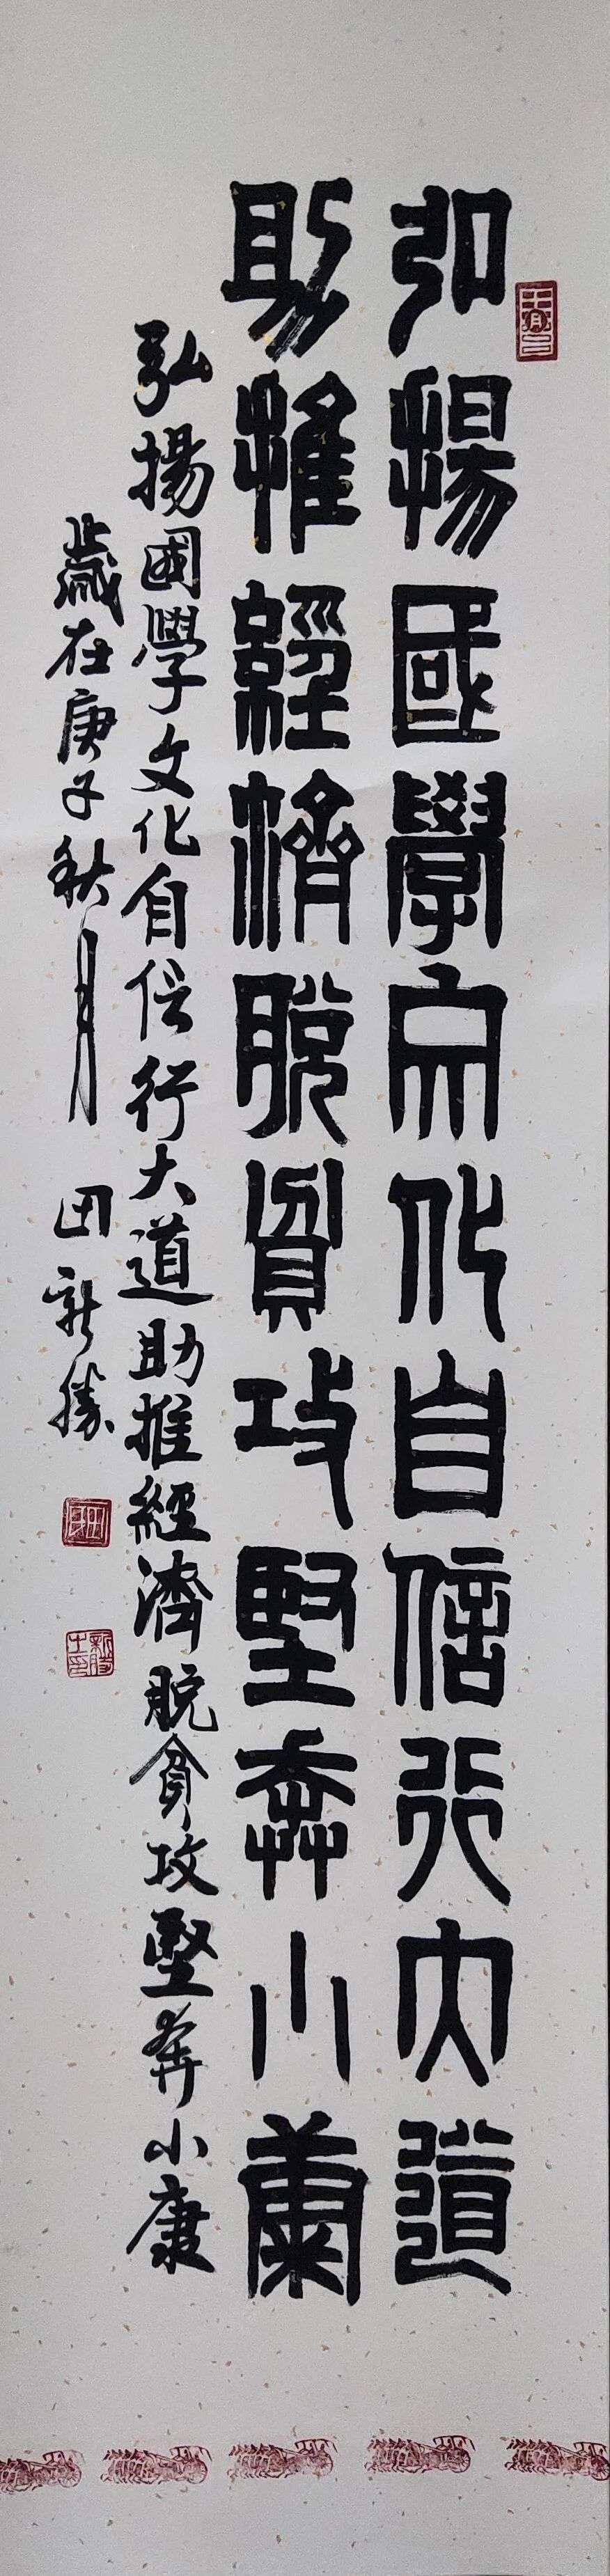 弘揚國學文化自信行大道
助推經濟脫貧攻堅奔小康
弘揚國學文化自信行大道助推經濟脫貧攻堅奔小康
歲在庚子秋月 田新勝